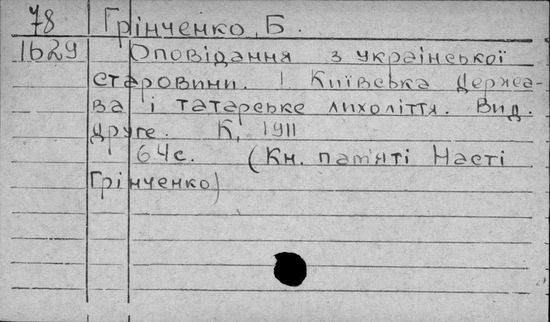 78 Грінченко, Б.
1629 Оповідання з української
старовини. I Київська Держа-
ва і татарське лихоліття. Вид.
друге. К, 1911
64с. (Кн. пам'яті Насті
Грінченко)